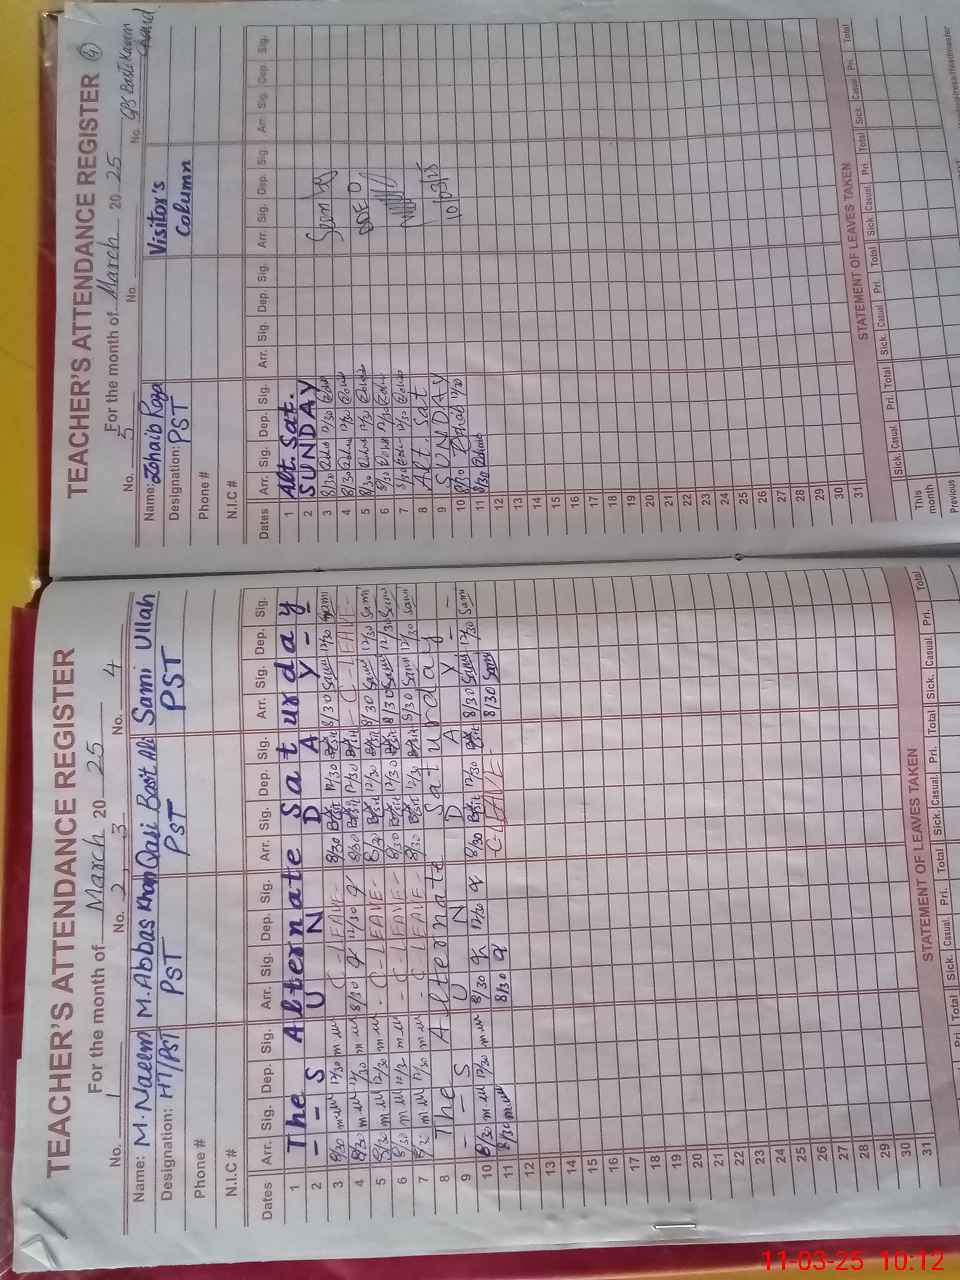 TEACHER'S ATTENDANCE REGISTER
For the month of March 20 25
No. 1 No. 2 3 No. 4
Name: M. Naeem M. Abbas Khan Qazi Basit Ali Sami Ullah
Designation: HT/PST PST PST PST
Phone #
N.I.C #
Dates Arr. Sig. Dep. Sig. Arr. Sig. Dep. Sig. Arr. Sig. Dep. Sig. Arr. Sig. Dep. Sig.
1 The Alternate Saturday
2 - - S U N D A Y -
3 8/30 12/30 C - LEAVE - 8/30 Basit 12/30 Basit 8/30 Sami 12/30 Sami
4 8/30 12/30 8/30 12/30 8/30 Basit 12/30 Basit - C - LEAVE -
5 8/30 12/30 - C - LEAVE - 8/30 Basit 12/30 Basit 8/30 Sami 12/30 Sami
6 8/30 12/30 - C - LEAVE - 8/30 Basit 12/30 Basit 8/30 Sami 12/30 Sami
7 8/30 12/30 - C - LEAVE - 8/30 Basit 12/30 Basit 8/30 Sami 12/30 Sami
8 The Alternate Saturday
9 - - S U N D A Y -
10 8/30 12/30 8/30 12/30 8/30 Basit 12/30 Basit 8/30 Sami 12/30 Sami
11 8/30 8/30 - C - LEAVE - 8/30 Sami
12
13
14
15
16
17
18
19
20
21
22
23
24
25
26
27
28
29
30
31
STATEMENT OF LEAVES TAKEN
Total Sick. Casual. Pri. Total Sick. Casual. Pri. Total Sick. Casual. Pri. Total
TEACHER'S ATTENDANCE REGISTER 4
For the month of March 20 25
No. 5 No. No. GPS Basti Kareem
Name: Zohaib Raza Visitor's
Designation: PST Column
Phone #
N.I.C #
Dates Arr. Sig. Dep. Sig. Arr. Sig. Dep. Sig. Arr. Sig. Dep. Sig. Arr. Sig. Dep. Sig.
1 Alt. Sat.
2 SUNDAY
3 8/30 12/30 Seen by
4 8/30 12/30
5 8/30 12/30 DDEO
6 8/30 12/30
7 8/30 12/30
8 Alt. Sat
9 SUNDAY
10 8/30 Zohaib 12/30 10/03/25
11 8/30 Zohaib
12
13
14
15
16
17
18
19
20
21
22
23
24
25
26
27
28
29
30
31
STATEMENT OF LEAVES TAKEN
Sick. Casual. Pri. Total Sick. Casual. Pri. Total Sick Casual. Pri. Total Sick. Casual Pri. Total
This month
Previous
11-03-25 10:12